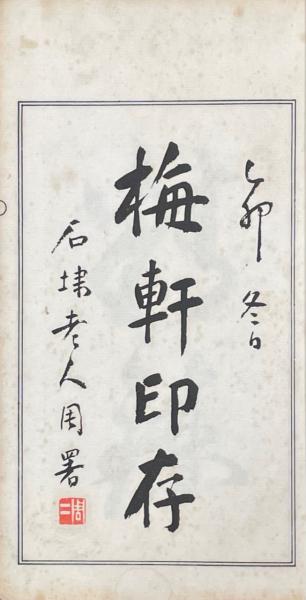 乙卯冬日
梅軒印存
石埭老人周署